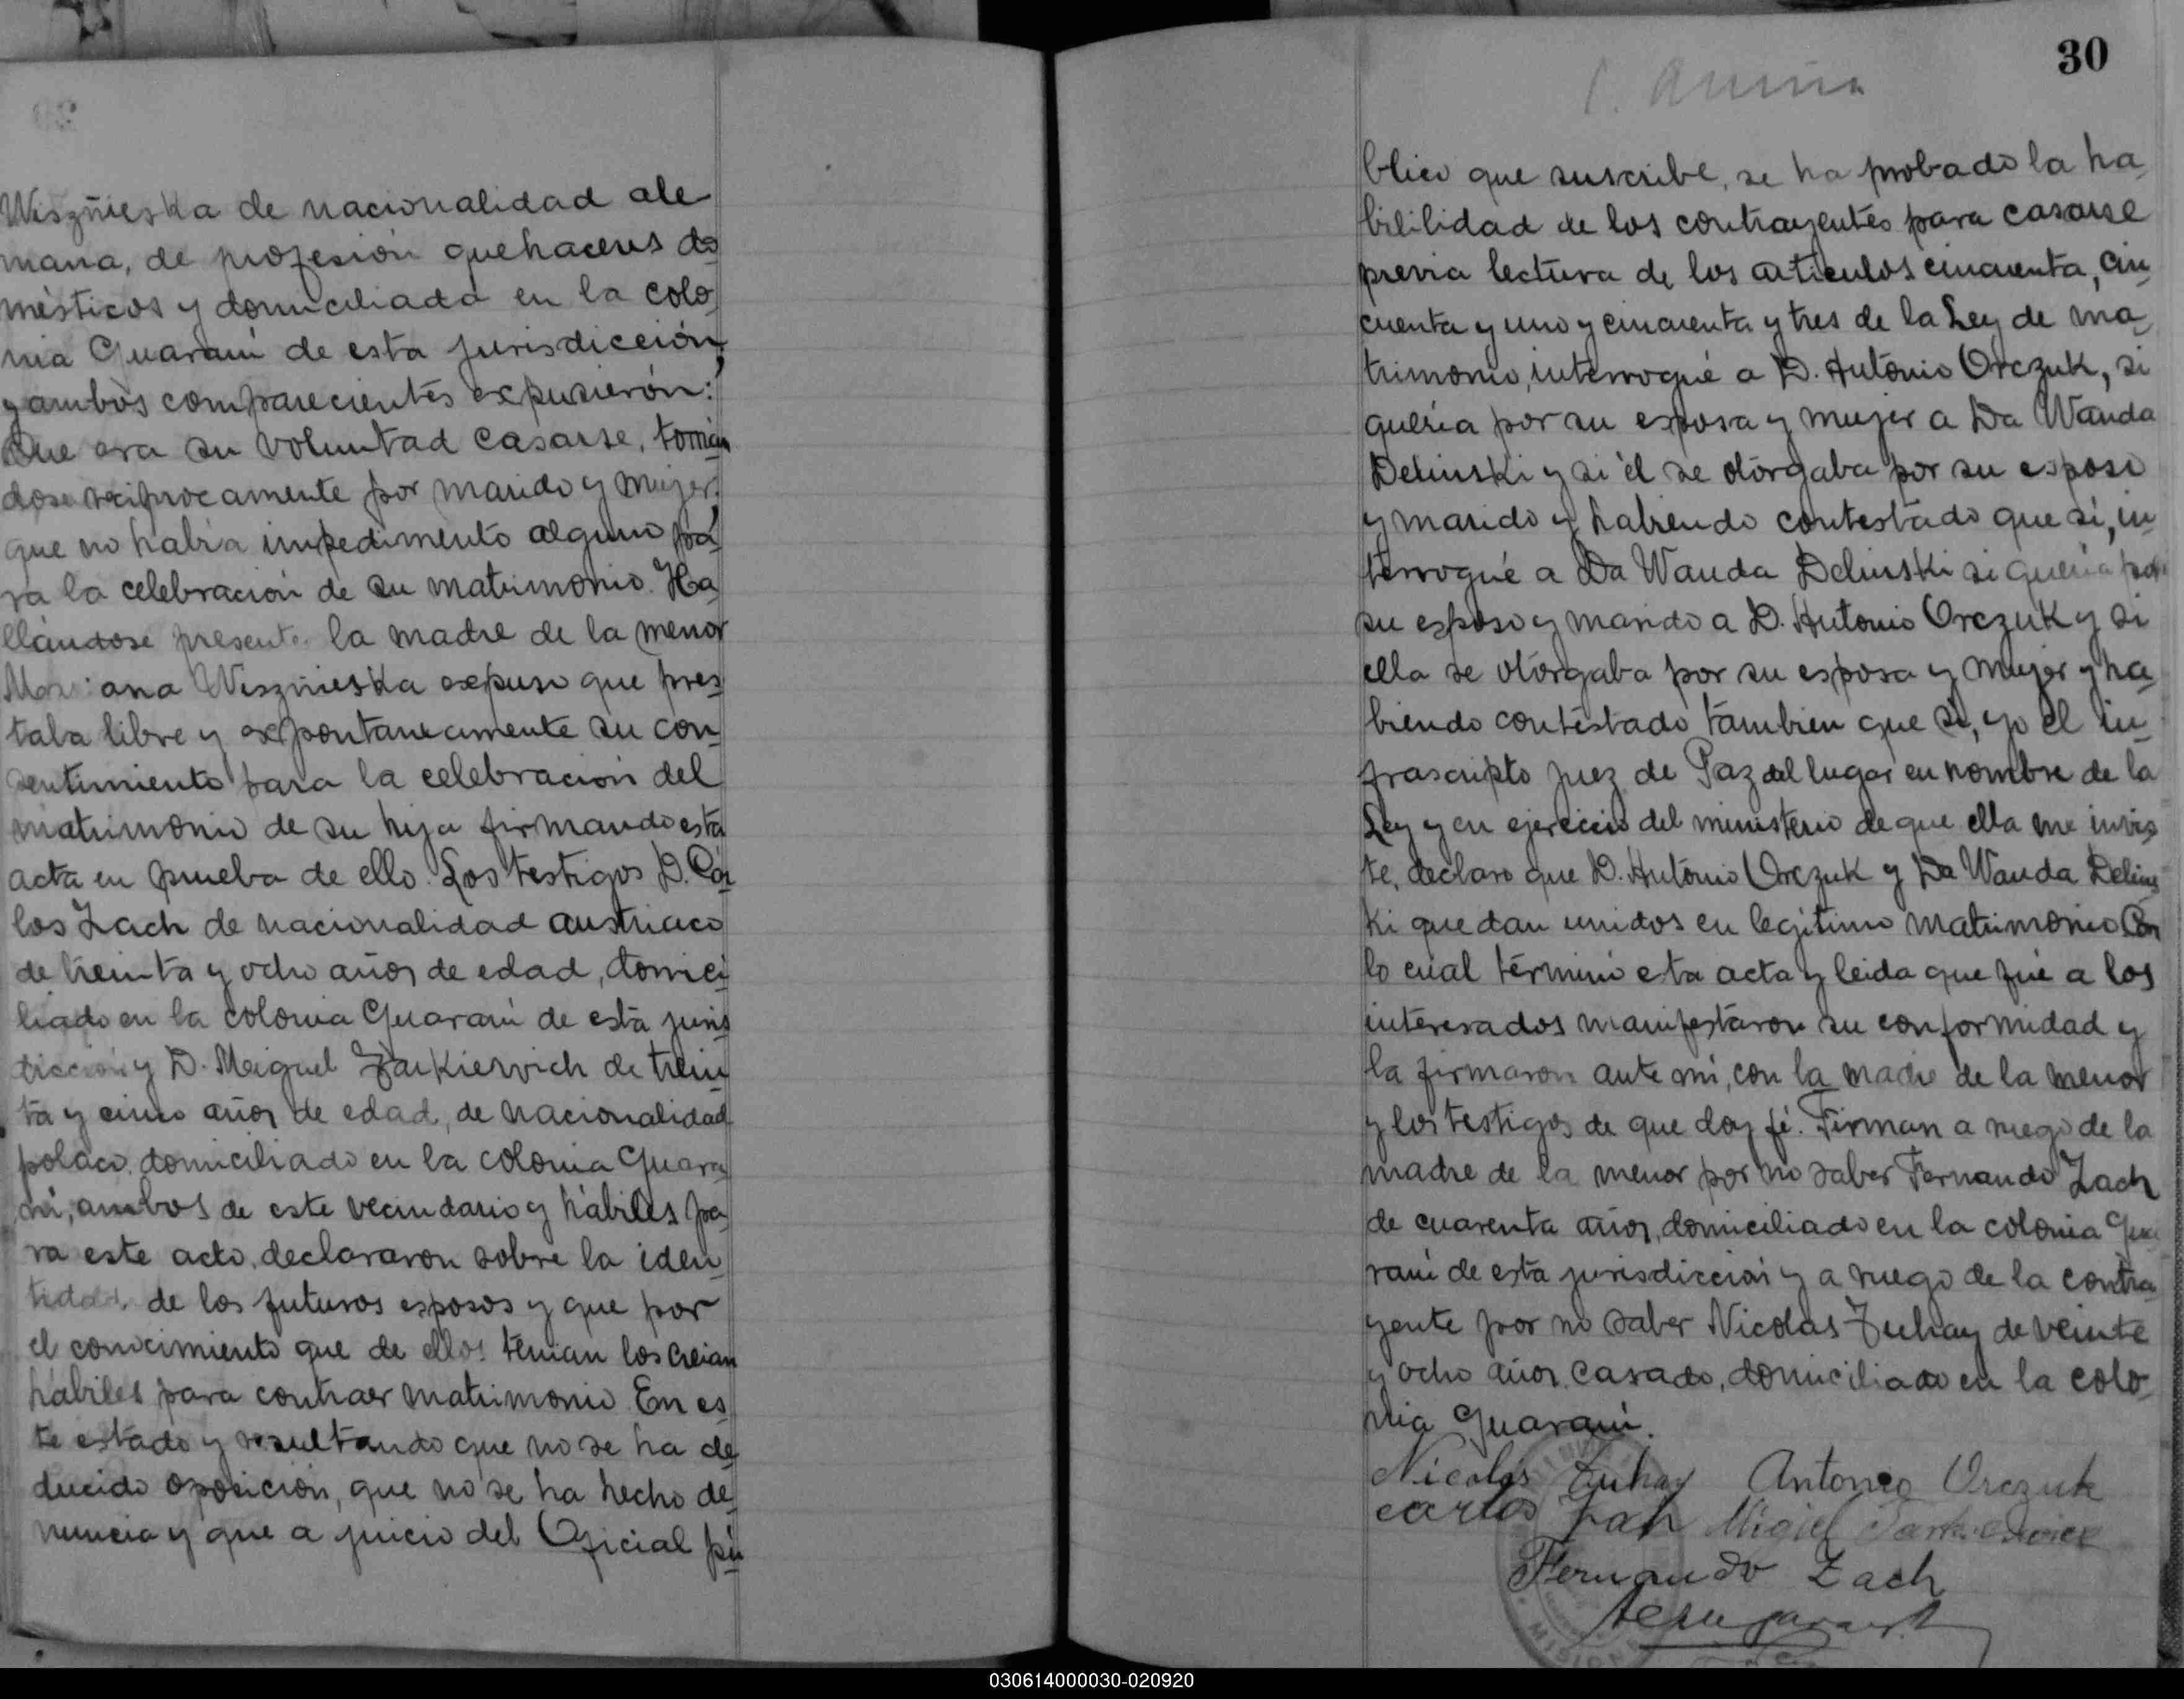 Wiszñieska de nacionalidad ale
mana, de profesión quehaceres do
mésticos y domiciliada en la colo
nia Guaraní de esta jurisdicción,
y ambos comparecientes expusierón:
Que era su voluntad casarse, tomán
dose reciprocamente por marido y mujer;
que no habia impedimento alguno pa
ra la celebración de su matrimonio. Ha
llándose presente la madre de la menor
Marciana Wiszñieska expuso que pres
taba libre y expontaneamente su con
sentimiento para la celebracion del
matrimonio de su hija firmando esta
acta en prueba de ello. Los testigos D. Cár
los Zach de nacionalidad austriaco
de treinta y ocho años de edad, domici
liado en la colonia Guaraní de esta juris
dicción y D. Meiguel de trein
ta y cinco años de edad, de nacionalidad
polaco, domiciliado en la colonia Guara
ní, ambos de este vecindario y hábiles pa
ra este acto, declararon sobre la iden
tidad de los futuros esposos y que por
el conocimiento que de ellos tenian los creian
hábiles para contraer matrimonio. En es
te estado y resultando que no se ha de
ducido oposición, que no se ha hecho de
nuncia y que a juicio del Oficial pú
30
blico que suscribe, se ha probado la ha
bililidad de los contrayentes para casarse
previa lectura de los articulos cincuenta, cin
cuenta y uno y cincuenta y tres de la Ley de ma
trimonio, interrogué a D. Antonio Orczuk, si
queria por su esposa y mujer a Da Wanda
Delinski y si él se otorgaba por su esposo
y marido y habiendo contestado que sí, in
terrogué a Da Wanda Delinski si queria por
su esposo y marido a D. Antonio Orczuk y si
ella se otorgaba por su esposa y mujer y ha
biendo contestado tambien que si, yo el in
frascripto juez de Paz del lugar en nombre de la
Ley y en ejercicio del ministerio de que ella me invis
te, declaro que D. Antonio Orczuk y Da Wanda Delins
ki quedan unidos en legitimo matrimonio Con
lo cual términó esta acta y leida que fué a los
interesados manifestaron su conformidad y
la firmaron ante mi, con la madre de la menor
y los testigos de que doy fé. Firman a ruego de la
madre de la menor por no saber Fernando Zach
de cuarenta años, domiciliado en la colonia Gua
raní de esta jurisdicción y a ruego de la contra
yente por no saber Nicolas Zuhay de veinte
y ocho años, casado, domiciliado en la colo
nia Guaraní.
Nicolás Zuhay Antonio Orczuk
carlos Zah Migiel
Fernando Zach
MISIONES
030614000030-020920